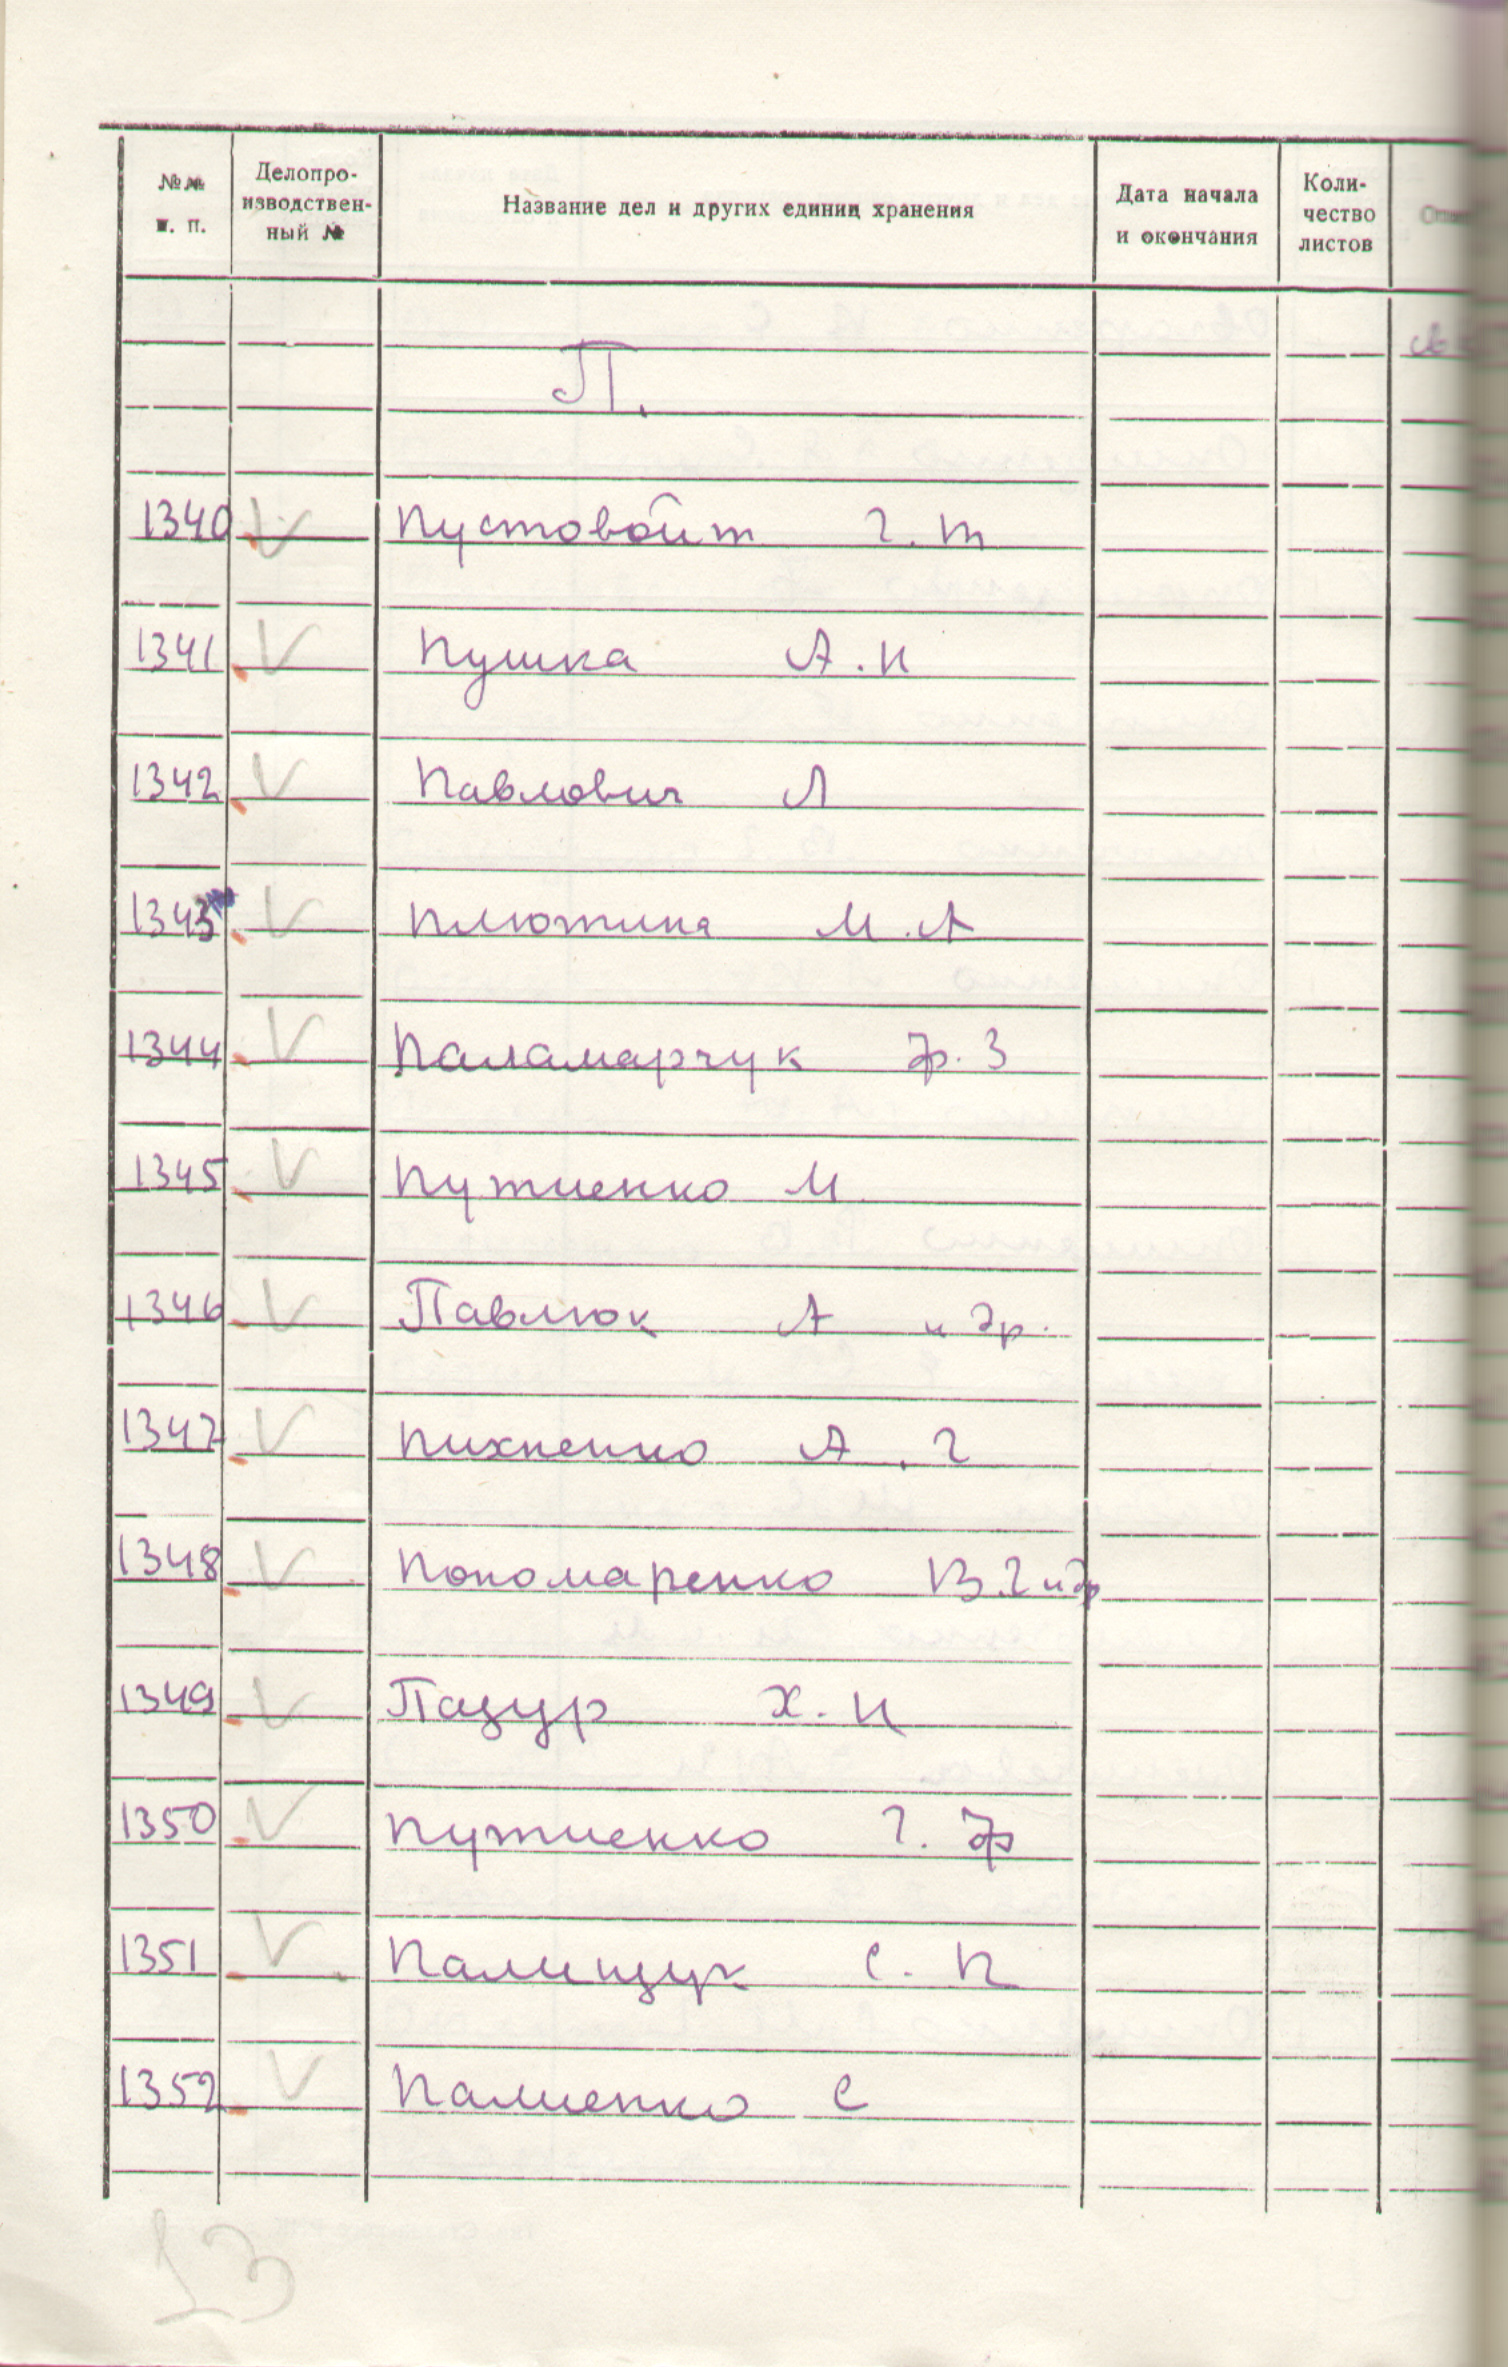 №№ п. п. Делопроизводственный № Название дел и других единиц хранения Дата начала и окончания Количество листов
П.
1340 Пустовойт Г. Т
1341 Пушка А. И
1342 Павлович Л
1343 Плютина М. А
1344 Паламарчук Ф. З
1345 Путиенко М
1346 Павлюк А и др.
1347 Пихненко А. Г
1348 Пономаренко В. Г и др
1349 Пацур Х. И
1350 Путиенко Г. Ф
1351 Палищук С. П
1352 Палиенко С
13